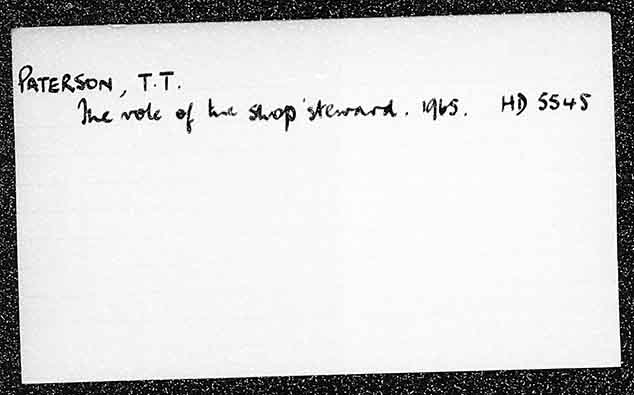 PATERSON, T.T.
The role of the shop steward. 1965. HD 5545